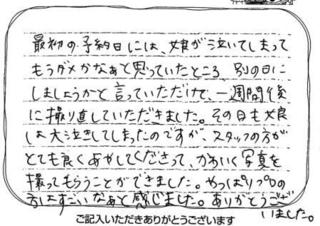 最初の予約日には、娘が泣いてしまって
もうダメかなぁと思っていたところ、別の日に
しましょうかと言っていただけて、一週間後
に撮り直していただきました。その日も娘
は大泣きしてしまったのですが、スタッフの方が
とても良くあやしてくださって、かわいく写真を
撮ってもらうことができました。やっぱりプロの
方はすごいなぁと感じました。ありがとうござ
いました。
ご記入いただきありがとうございます